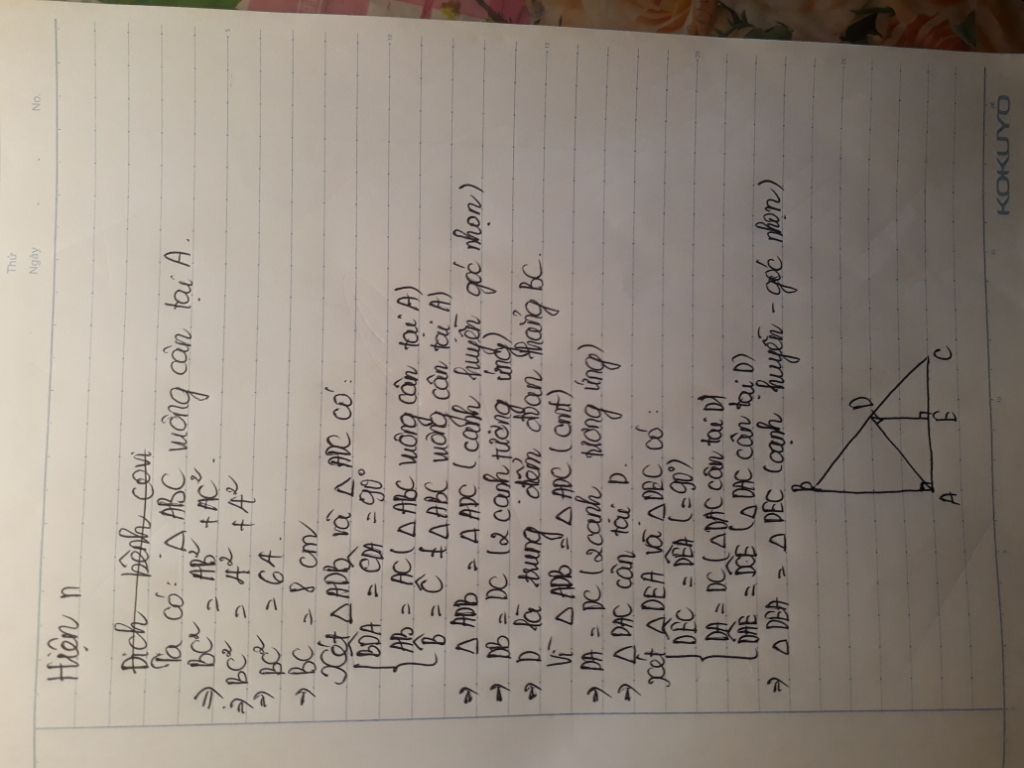 Thứ
Ngày
No.
Hiện n
Dịch bệnh covi
Ta có: △ ABC vuông cân tại A.
⇒ BC² = AB² + AC²
⇒ BC² = 4² + 4²
⇒ BC² = 64
→ BC = 8 cm
Xét △ ADB và △ ADC có:
BDA = CDA = 90°
AB = AC (△ ABC vuông cân tại A)
B̂ = Ĉ (△ ABC vuông cân tại A)
⇒ △ ADB = △ ADC (cạnh huyền góc nhọn)
→ DB = DC (2 cạnh tương ứng)
→ D là trung điểm đoạn thẳng BC.
Vì △ ADB = △ ADC (cmt)
⇒ DA = DC (2 cạnh tương ứng)
→ △ DAC cân tại D.
xét △ DEA và △ DEC có:
DEC = DEA (= 90°)
DA = DC (△ DAC cân tại D)
DAE = DCE (△ DAC cân tại D)
⇒ △ DEA = △ DEC (cạnh huyền - góc nhọn)
B
D
A
E
C
KOKUYO